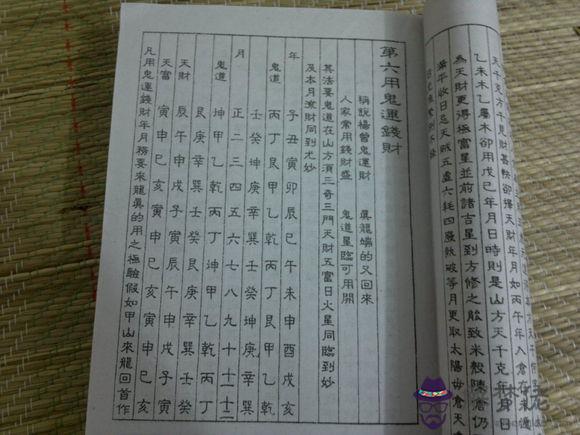 天千克方千見財甚秧卻擇天財年月如丙午年入倉在未遁
乙未木乙屬木卻用戊己年月日時則是山方天千克年月日
為天財更得極富星並前諸吉星到方修之能致米穀陳倉仍
滿平收日忌天賊五虛六耗四廢執破等月更取太陽母倉天
第六用鬼運錢財
稱說楊曾鬼運財 真龍端的又回來
人家常用錢財盛 鬼道星臨可用開
其法要鬼道在山方須三奇三門天財五富日火星同臨到妙
及本月滾財同到尤妙
年 子丑寅卯辰巳午未申酉戌亥
鬼道 丙丁艮甲乙乾丙丁艮甲乙乾
壬癸坤庚辛巽壬癸坤庚辛巽
月 正二三四五六七八九十十一十二
鬼道 坤甲乙乾丙丁坤甲乙乾丙丁
艮庚辛巽壬癸艮庚辛巽壬癸
天財 辰午申戌子寅辰午申戌子寅
天富 寅申巳亥寅申巳亥寅申巳亥
凡用鬼運錢財年月務要來龍真的用之極驗假如甲山來龍回首作